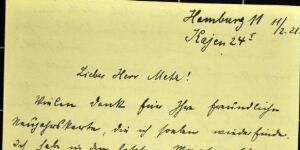 Hamburg 11 11/2.21
Kajen 24 I
Lieber Herr Metz!
Vielen Dank für Ihre freundliche
Neujahrskarte, die ich soeben wiederfinde.
Ich hab in den letzten